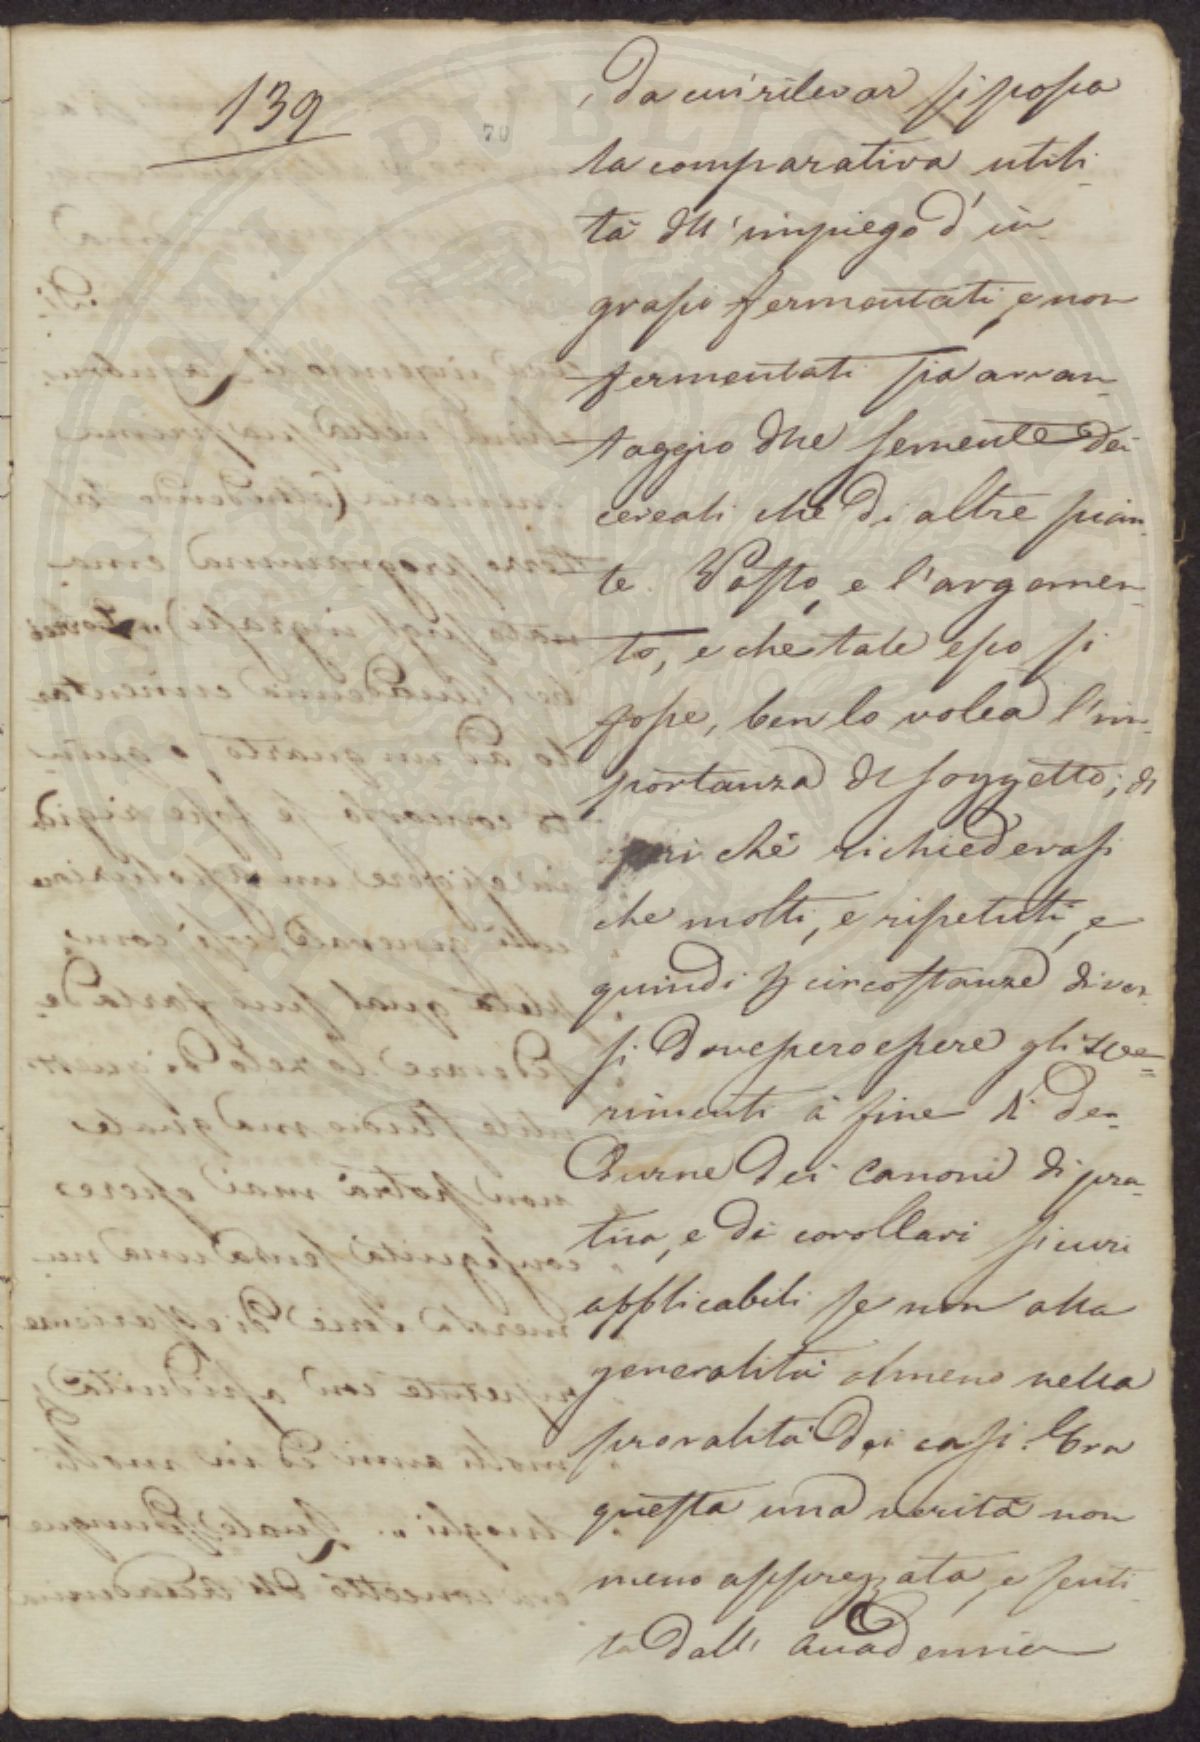 139
70
, da cui rilevar si possa
la comparativa utili-
tà dell'impiego d'in-
grassi fermentati, e non
fermentati sia avvan-
taggio delle semente dei
cereali che di altre pian-
te. Vasto, e l'argomen-
to, e che tale esso si
fosse, ben lo volea l'im-
portanza del soggetto; di
poi chè richiedevasi
che molti, e ripetuti, e
quindi per circostanze diver-
si dovessero essere gli spe-
rimenti a fine di de-
durne dei canoni di pra-
tica, e di corollari sicuri
applicabili se non alla
generalità almeno nella
pluralità dei casi. Era
questa una verità non
meno apprezzata, e senti-
ta dall' accademia